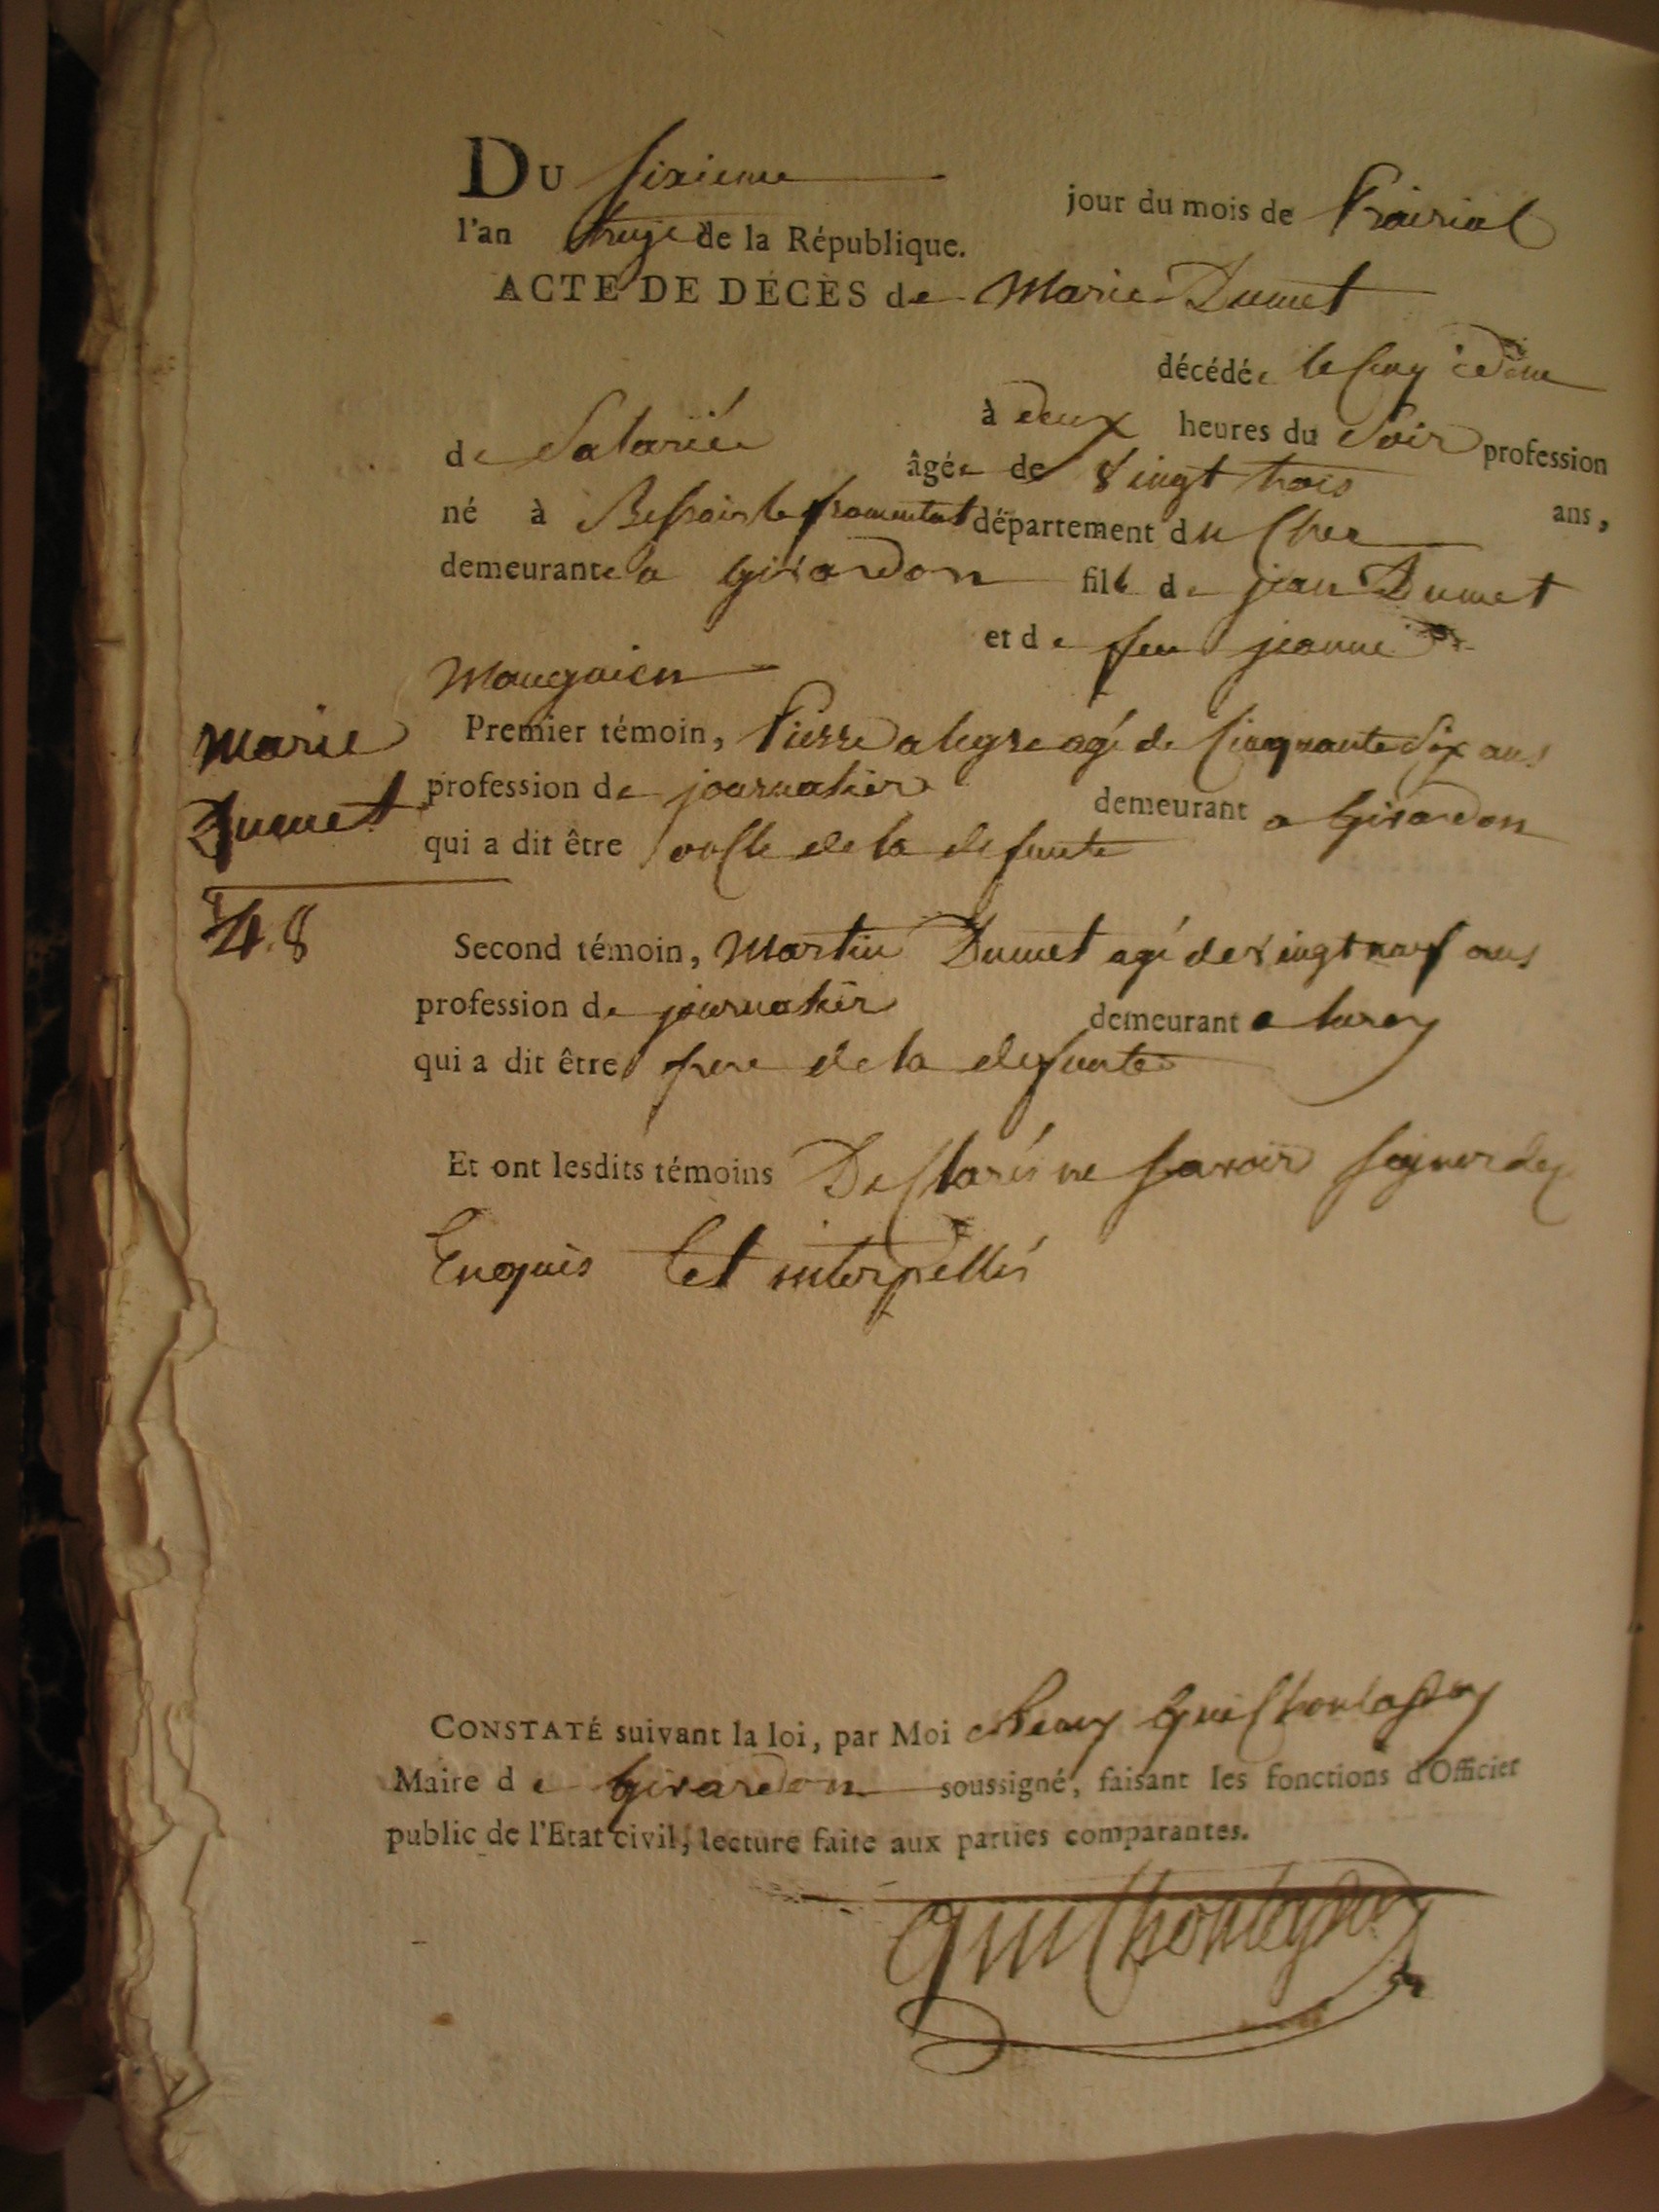 DU sixieme jour du mois de Prairial
l'an treize de la République.
ACTE DE DÉCÈS de Marie Dumet
décédée le Cinq
à deux heures du Soir profession
de Salariée âgée de Vingt trois ans,
né à Bessais le fromental département du Cher
demeurante a Girardon fille de jean Dumet
et de feu jeanne
Mauguien
Marie
Dumet
48
Premier témoin, Pierre alegre agé de Cinquante Six ans
profession de journalier demeurant a Girardon
qui a dit être oncle de la defunte
Second témoin, Martin Dumet agé de vingt neuf ans
profession de journalier demeurant a lurcy
qui a dit être frere de la defunte
Et ont lesdits témoins Declarés ne Savoir Signer de ce
Enquis Et interpellés
CONSTATÉ suivant la loi, par Moi
Maire de Girardon soussigné, faisant les fonctions d'Officier
public de l'Etat civil, lecture faite aux parties comparantes.